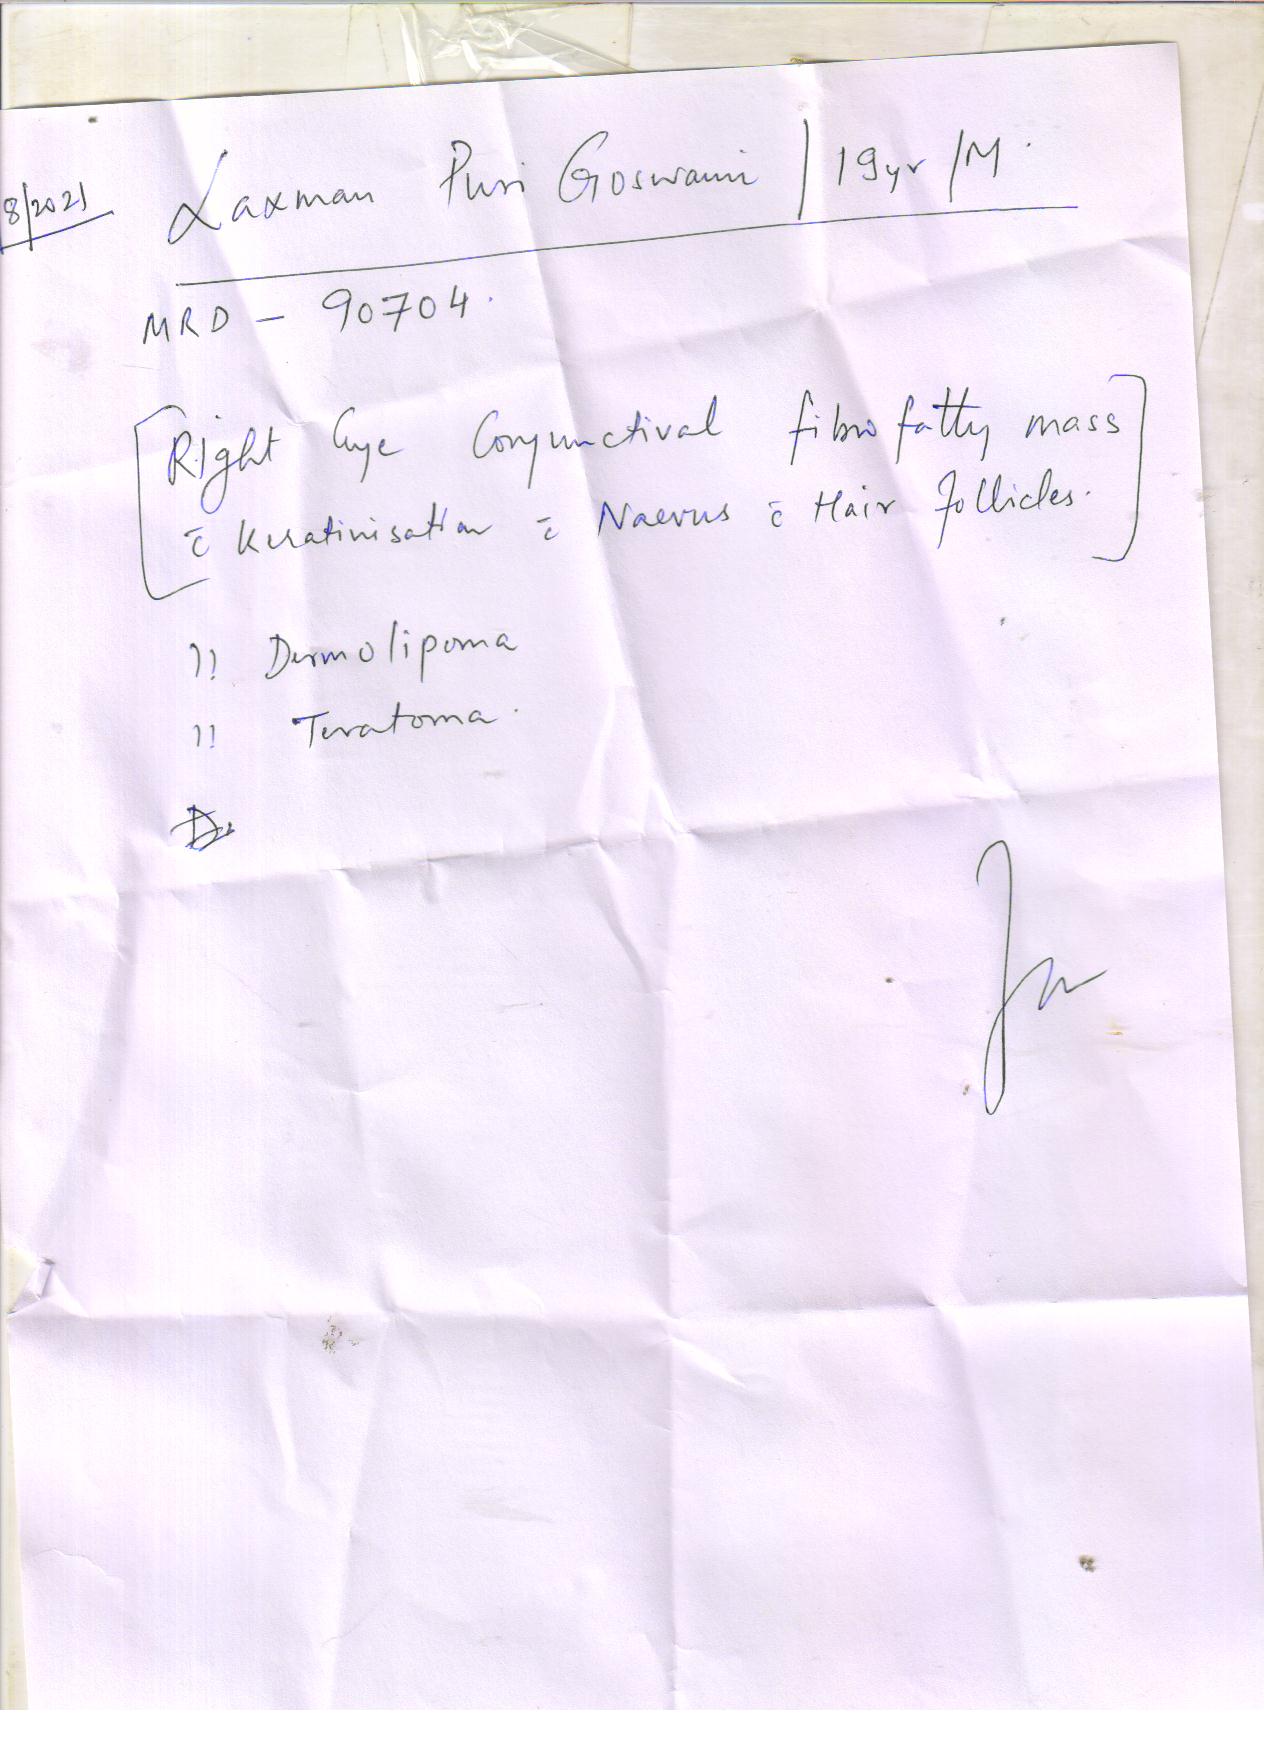 8/2021 Laxman Puri Goswami | 19yr/M.
MRD - 90704.
[Right Eye Conjunctival fibrofatty mass
c̄ Keratinisation c̄ Naevus c̄ Hair follicles.]
?? Dermolipoma
?? Teratoma.